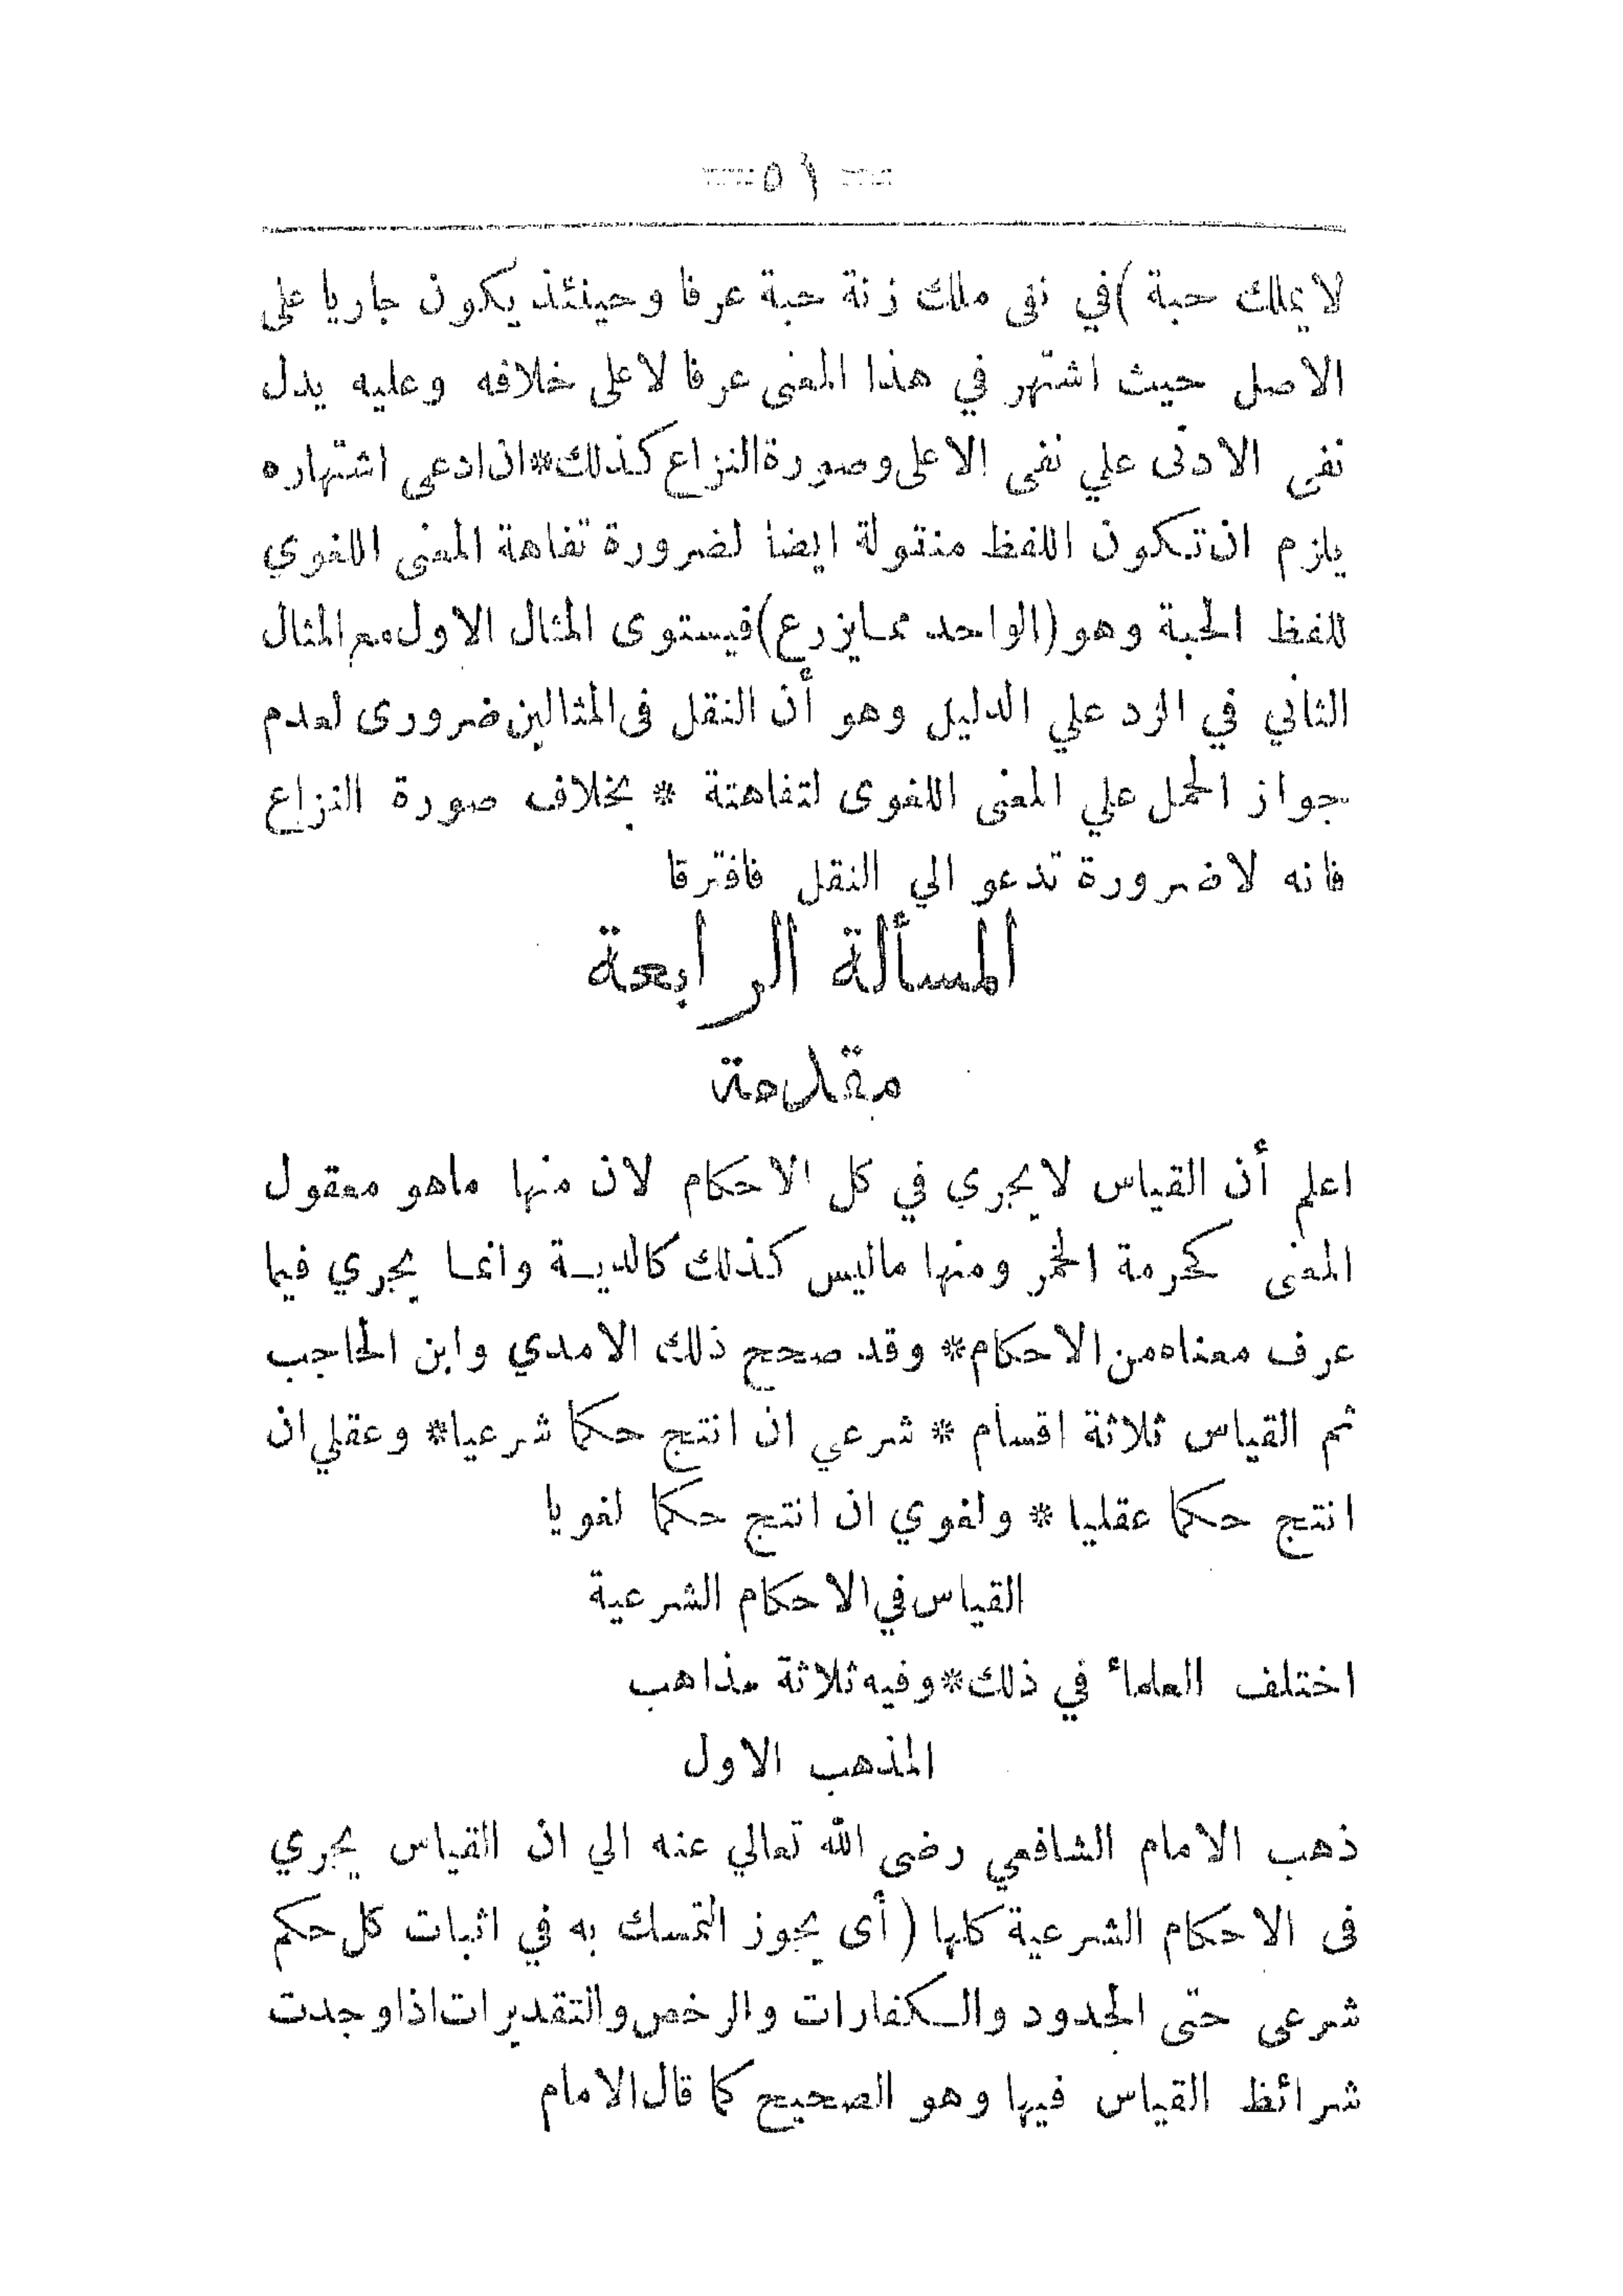 == ٥١ ==
لا يملك حبة )في نفى ملك زنة حبة عرفا وحينئذ يكون جاريا على
الاصل حيث اشتهر في هذا المعنى عرفا لاعلى خلافه وعليه يدل
نفى الادنى علي نفى الاعلى وصورة النزاع كذلك*ان ادعى اشتهاره
يلزم ان تكون اللفظ منقولة ايضا لضرورة تفاهة المعنى اللغوي
للفظ الحبة وهو (الواحد ممايزرع)فيستوى المثال الاول مع المثال
الثاني في الرد علي الدليل وهو أن النقل فى المثالين ضرورى لعدم
جواز الحمل علي المعنى اللغوى لتفاهتة * بخلاف صورة النزاع
فانه لاضرورة تدعو الي النقل فافترقا
المسألة الرابعة
مقدمة
اعلم أن القياس لايجري في كل الاحكام لان منها ماهو معقول
المعنى كحرمة الخمر ومنها ماليس كذلك كالدية وانما يجري فيما
عرف معناه من الاحكام* وقد صحح ذلك الامدي وابن الحاجب
ثم القياس ثلاثة اقسام * شرعي ان انتج حكما شرعيا* وعقلي ان
انتج حكما عقليا * ولغوي ان انتج حكما لغويا
القياس في الاحكام الشرعية
اختلف العلماء في ذلك*وفيه ثلاثة مذاهب
المذهب الاول
ذهب الامام الشافعي رضى الله تعالي عنه الي ان القياس يجري
فى الاحكام الشرعية كلها ( أى يجوز التمسك به في اثبات كل حكم
شرعى حتى الحدود والكفارات والرخص والتقديرات اذا وجدت
شرائظ القياس فيها وهو الصحيح كما قال الامام